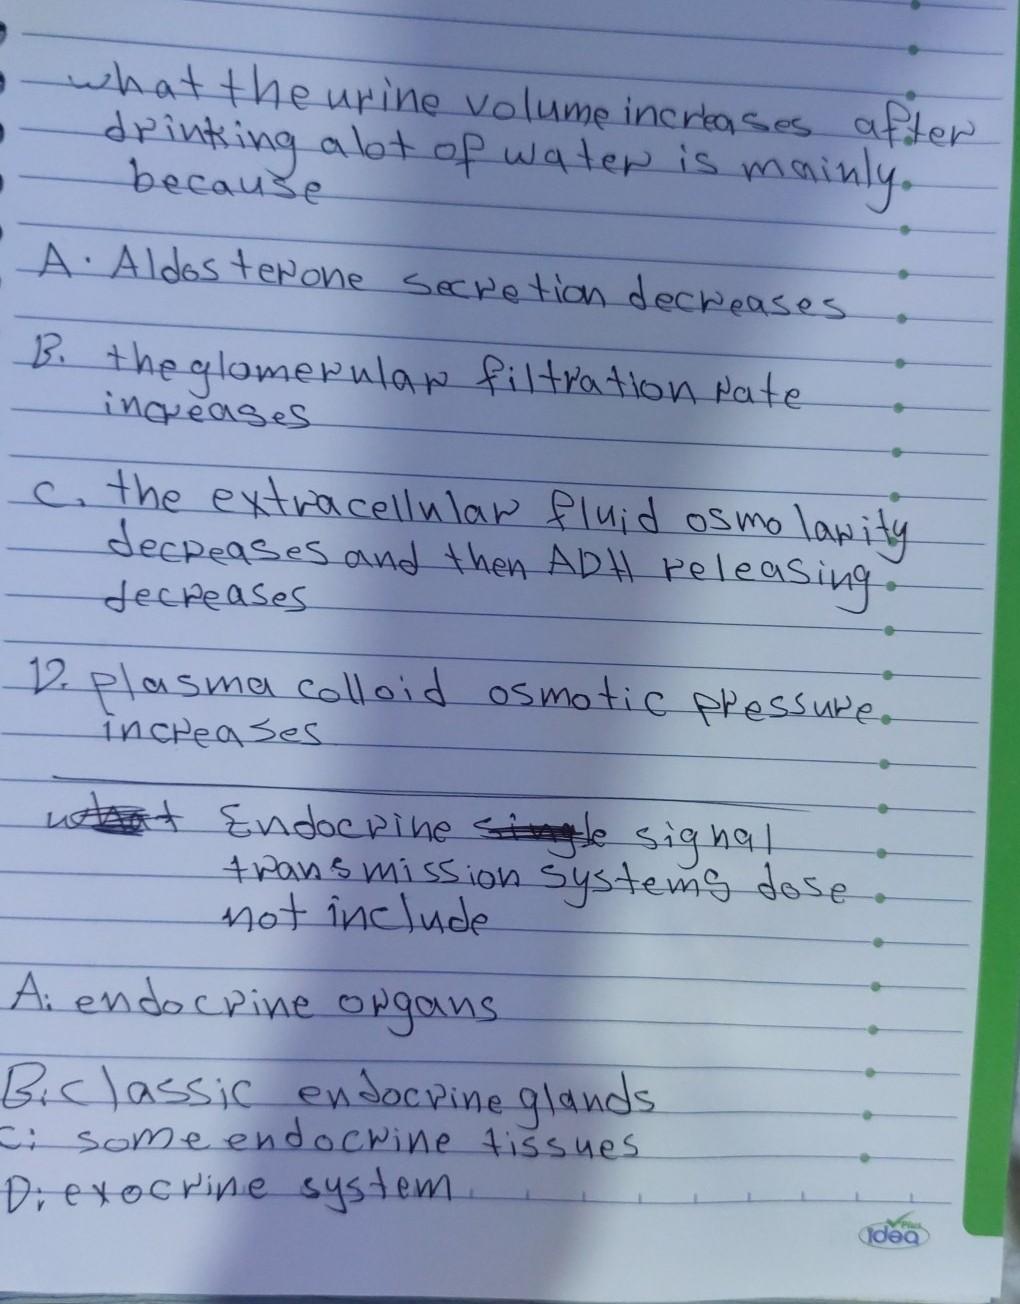 what the urine volume increases after
drinking a lot of water is mainly.
because
A. Aldosterone secretion decreases
B. the glomerular filtration rate
increases
C. the extracellular fluid osmolarity
decreases and then ADH releasing
decreases
D. plasma colloid osmotic pressure
increases
Endocrine signal
transmission systems dose
not include
A: endocrine organs
B: classic endocrine glands
C: some endocrine tissues
D: exocrine system
Plus
idea